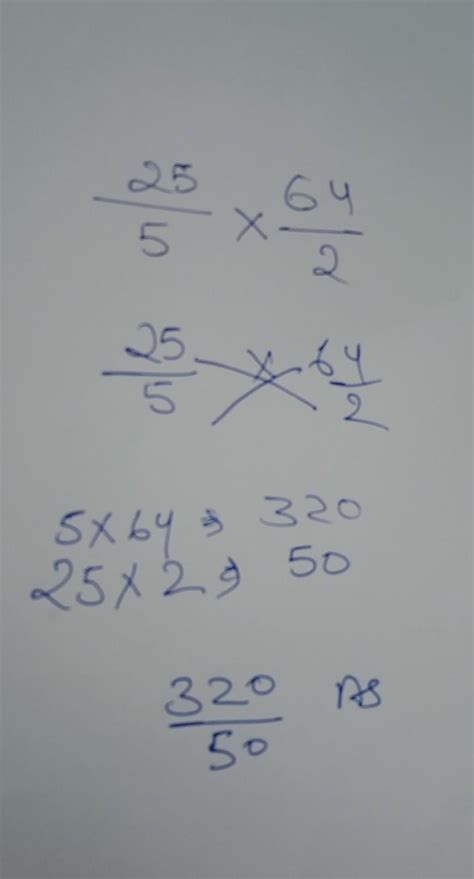 25/5 × 64/2
25/5 × 64/2
5×64 → 320
25×2 → 50
320/50 As